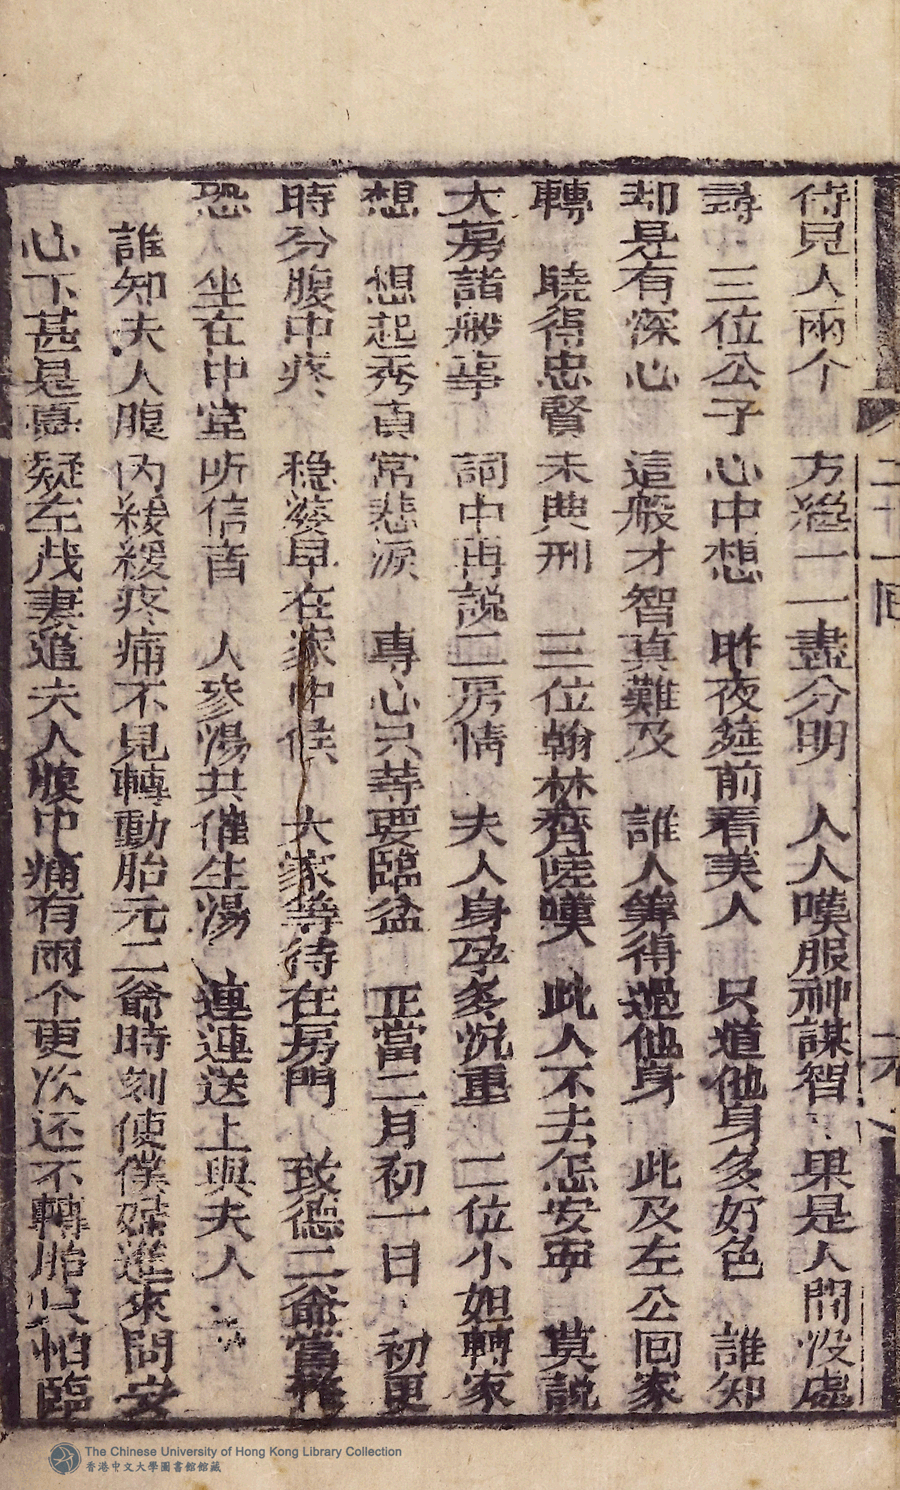 二十一回
二
侍見人兩个　方絕一一盡分明　人人嘆服神謀智　果是人間没處
尋　三位公子心中想　昨夜筵前看美人　只道他身多好色　誰知
却是有深心　這般才智真難及　誰人筭得過他身　此及左公回家
轉　曉得忠賢未典刑　三位翰林齊嗟嘆　此人不去怎安寧　莫說
大房諸般事　詞中再說二房情　夫人身孕多沉重　二位小姐轉家
想　想起秀貞常悲淚　專心只等要臨盆　正當二月初一日　初更
時分腹中疼　穩婆早在家中候　大家等待在房門　致德二爺當
恐　坐在中堂听信音　人參湯共催生湯　連連送上與夫人
誰知夫人腹内緩緩疼痛不見轉動胎元二爺時刻使僕婦進來問安
心下甚是憂疑左茂妻道夫人腹中痛有兩个更次还不轉胎只怕臨
The Chinese University of Hong Kong Library Collection
香港中文大學圖書館館藏